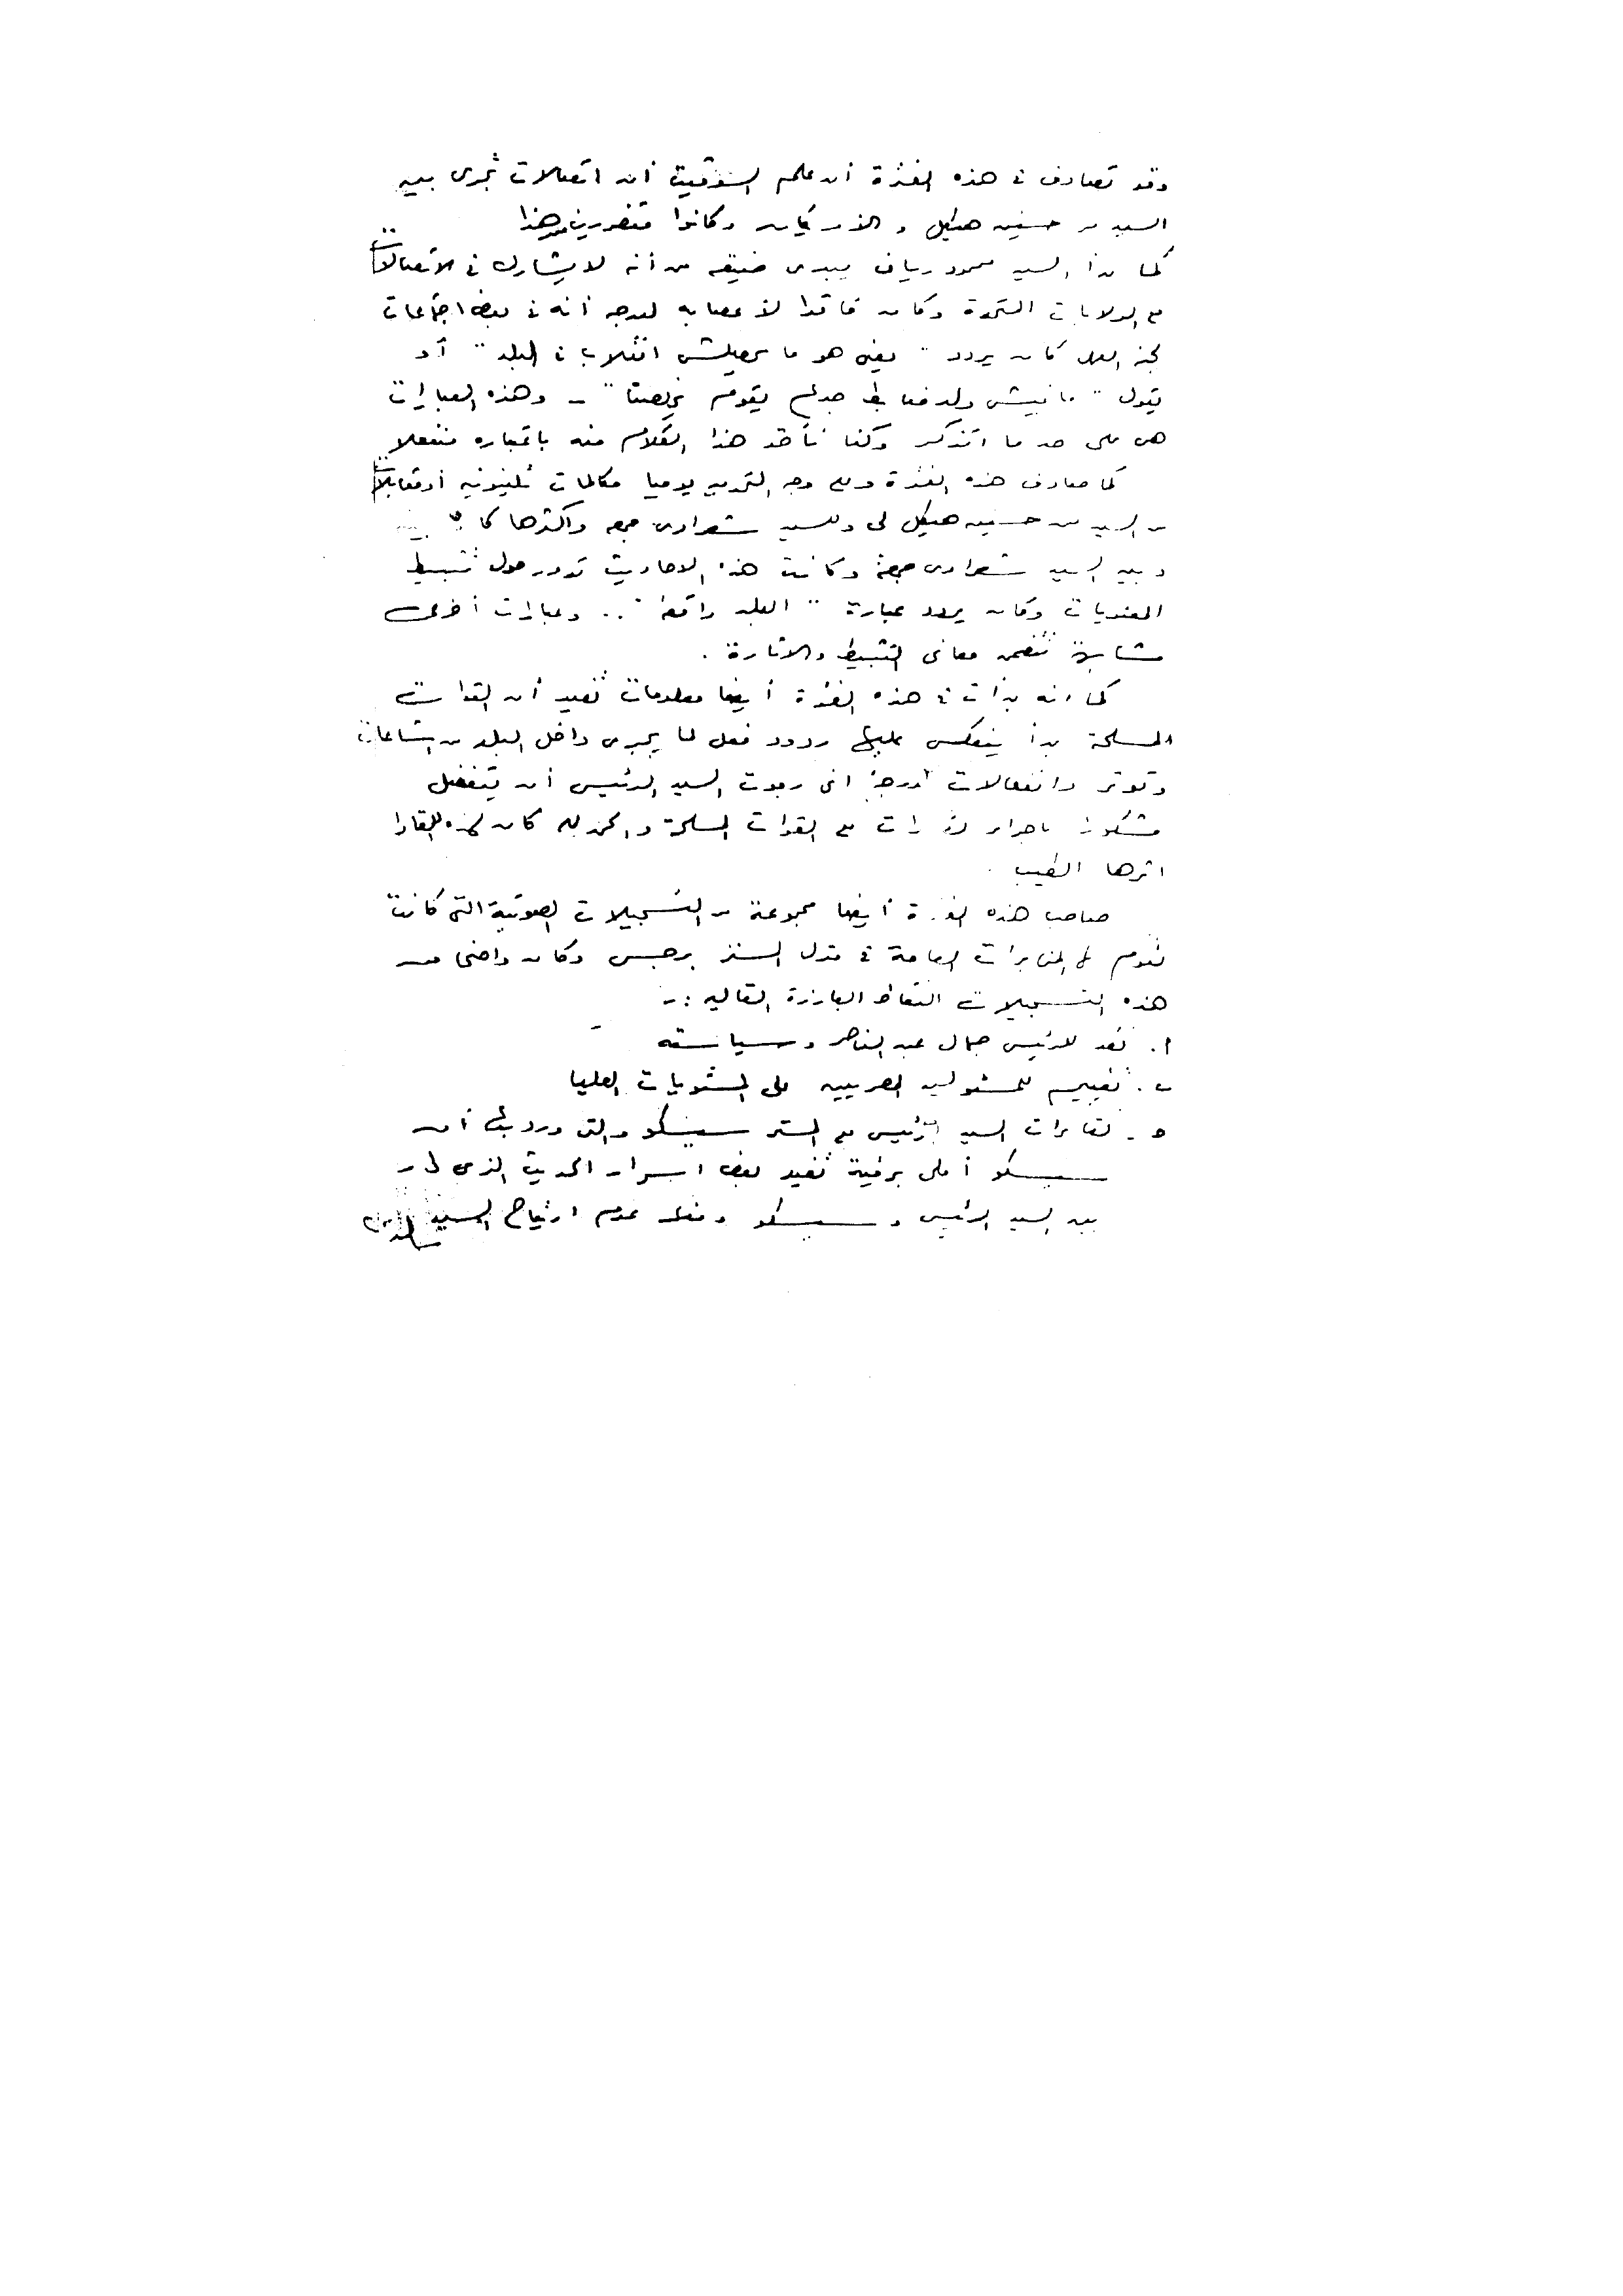 وقد تصادف فى هذه الفترة أن علم السوفيت أن اتصالات تجرى بين
السيد حسنين هيكل والأمريكان وكانوا متضررين من هذا
كما بدأ السيد محمود رياض يبدى ضيقه من أنه لا يشارك فى الاتصالات
مع الولايات المتحدة وكان فاقدا لأعصابه لدرجة أنه فى بعض اجتماعات
لجنة العمل كان يردد " يعنى هو ما يحصلش انقلاب فى البلد " أو
يقول " ما فيش ولد ضابط جدع يقوم يخلصنا " - وهذه العبارات
هى على حد ما أتذكر وكنا نأخذ هذا الكلام منه باعتباره منفعلا
كما صادف هذه الفترة وعلى وجه التحديد يوميا مكالمات تليفونية أو مقابلات
من السيد حسنين هيكل لى وللسيد شعراوى جمعه وأكثرها كان بينه
وبين السيد شعراوى جمعة وكانت هذه الأحاديث تدور حول تثبيط
المعنويات وكان يردد عبارة " البلد واقعة " .. وعبارات أخرى
مشابهة تتضمن معانى التثبيط والاثارة .
كما أنه بدأت فى هذه الفترة أيضا معلومات تفيد أن القوات
المسلحة بدأ ينعكس عليها ردود فعل لما يجرى داخل البلد من اشاعات
وتوتر وانفعالات لدرجة انى رجوت السيد الرئيس أن يتفضل
مشكورا باجراء لقاءات مع القوات المسلحة والحمد لله كان لهذه اللقاءات
اثرها الطيب .
صاحب هذه الفترة أيضا مجموعة من التسجيلات الصوتية التى كانت
تقوم بها المخابرات العامة فى منزل المستر برجس وكان واضحا من
هذه التسجيلات النقاط البارزة التالية : -
أ . نقد للرئيس جمال عبد الناصر وسياسته
ب . تقييم للمسئولين المصريين على المستويات العليا
ج . لقاءات السيد الرئيس مع المستر سيسكو والتى ورد بها أن
سيسكو أملى برقية تفيد بعض اسرار الحديث الذى دار
بين السيد الرئيس وسيسكو ومنها عدم ارتياح السيد